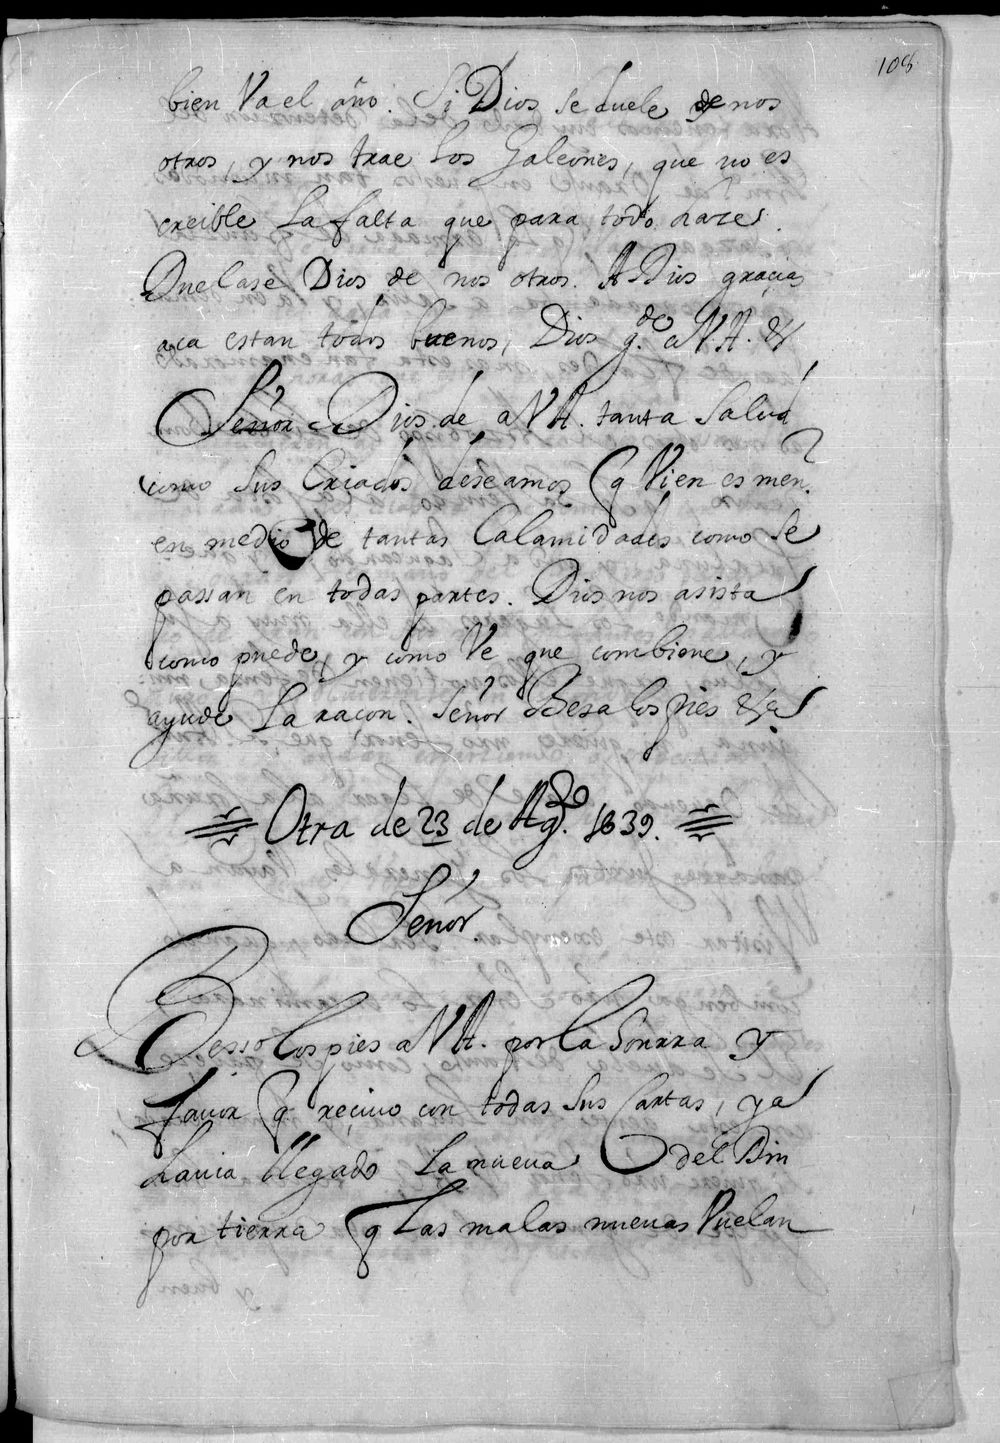 108
bien Va el año. Si Dios se duele de nos
otros, y nos trae los Galeones, que no es
creible la falta que para todo haze.
Duelase Dios de nos otros. A Dios gracias
aca estan todos buenos, Dios g.de a V.A. &
Señor Dios de a VA. tanta Salud
como sus Criados deseamos q Vien es men.r
en medio de tantas Calamidades como se
passan en todas partes. Dios nos asista
como puede, y como Ve que combiene, y
ayude la raçon. Señor Besa los pies &a
Otra de 23 de Ag.to 1639.
Señor.
Besso los pies a VA. por la honrra y
favor q reçivo con todas sus Cartas, ya
havia llegado la nueva del Bin
por tierra q las malas nuevas Vuelan
y buen